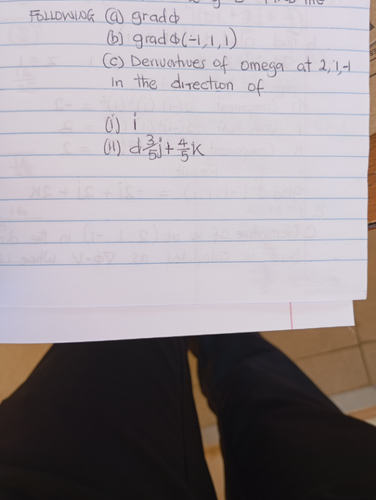 the
FOLLOWING (a) gradϕ
(b) gradϕ(-1,1,1)
(c) Derivatives of omega at 2,1,-1
in the direction of
(i) i
(ii) d 3/5 j + 4/5 k